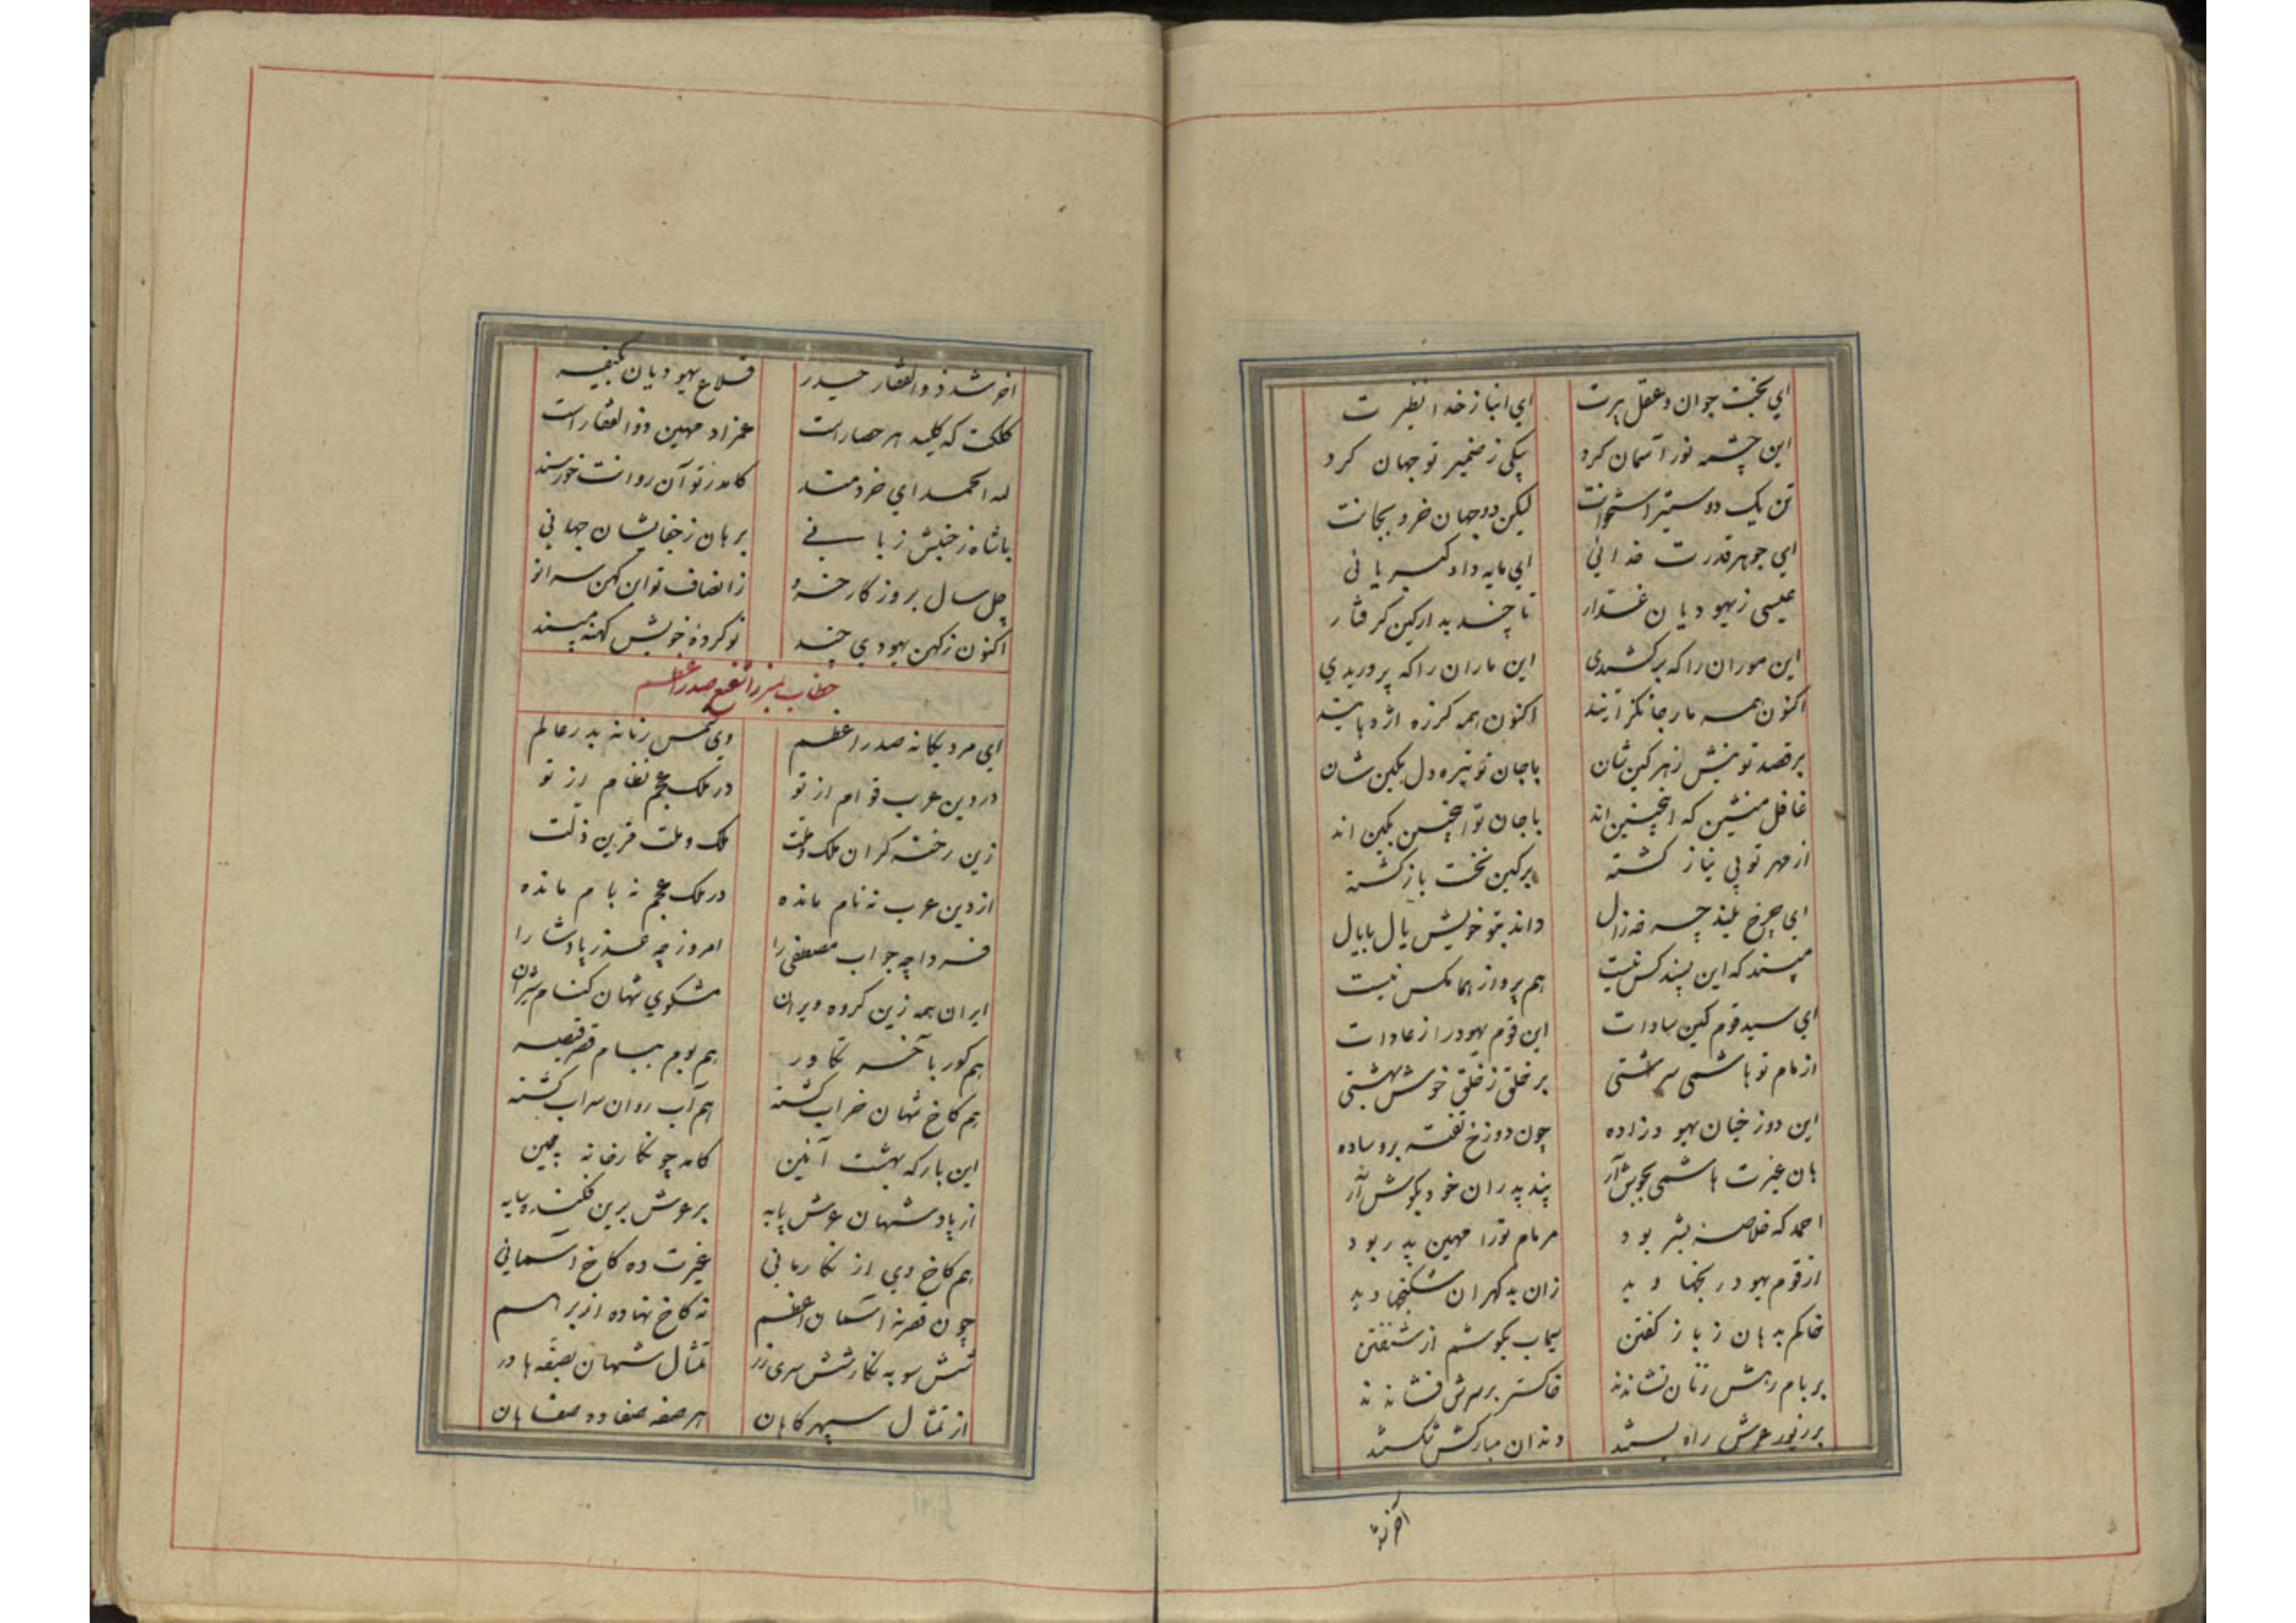 ای بخت جوان و عقل پیرت ای انباز خدا نظیرت
این چشمه نور آسمان کرد یکی ز ضمیر تو جهان کرد
تن یک دو ستیر استخوانت لیکن دو جهان خرد بجانت
ای جوهر قدرت خدائی ای مایه داد کبریائی
عیسی زیهودیان غدار تا چند بدار کین گرفتار
این موران را که برکشیدی این ماران را که پروریدی
اکنون همه مار جانگزایند اکنون همه گرزه اژدهایند
بر قصد تو نیش زهر کین شان باجان تو تیره دل بکین شان
غافل منشین که اینچنین اند باجان تو اینچنین بکین اند
از مهر تو بی نیاز گشته برکین نخست باز گشته
ای چرخ بلند چه خه زال داند بتو خویش یال بایال
مپسند که این پسند کس نیست هم پرواز هما مگس نیست
ای سید قوم کین سادات این قوم یهود را ز عادات
از مام تو هاشمی سرشتی بر خلق ز خلق خوش بهشتی
این دوزخیان یهود زاده چون دوزخ تفته بر وساده
هان غیرت هاشمی بجوش آر پند پدران خود بگوش آر
احمد که خلاصه بشر بود مرمام تورا مهین پدر بود
از قوم یهود رنجها دید زان بدگهران شکنجها دید
خاکم بدهان ز باز گفتن سیماب بگوشم از شنفتن
بر بام رهش زنان نشاندند خاکستر بر سرش فشاندند
بر زیور عرش راه بستند دندان مبارکش شکستند
آخر شد
آخر شد ذوالفقار حیدر قلاع یهودیان بکیفر
کلکت که کلید هر حصار است همزاد مهین ذوالفقار است
لله الحمد ای خردمند کامد ز تو آن روانت خورسند
باشاه ز جنبش زبانی برهان ز جفایشان جهانی
چل سال بروزگار خسرو ز انصاف تو ان کهن سرا نو
اکنون ز کهن یهودی چند نو کرده خویش کهنه مپسند
خطاب بمیرزا شفیع صدر اعظم
ای مرد یگانه صدر اعظم وی شمس زمانه بدر عالم
در دین عرب قوام از تو در ملک عجم نظام از تو
زین رخنه گران ملک و ملت ملک و ملت قرین ذلت
از دین عرب نه نام مانده در ملک عجم نه بام مانده
فردا چه جواب مصطفی را امروز چه عذر پادشا را
ایران همه زین گروه ویران مشکوی شهان کنام شیران
هم گور بآخر تکاور هم بوم ببام قصر قیصر
هم کاخ شهان خراب گشته هم آب روان سراب گشته
این بارگه بهشت آئین کامد چو نگارخانه چین
از پادشهان عرش پایه بر عرش برین فکنده سایه
هم کاخ وی از نگار مانی غیرت ده کاخ آسمانی
چون قصر نه آسمان اعظم نه کاخ نهاده از بر هم
شش سو به نگارشش سری در تمثال شهان بصفه ها در
از تمثال سپهرگاهان هر صفه صفا ده صفاهان